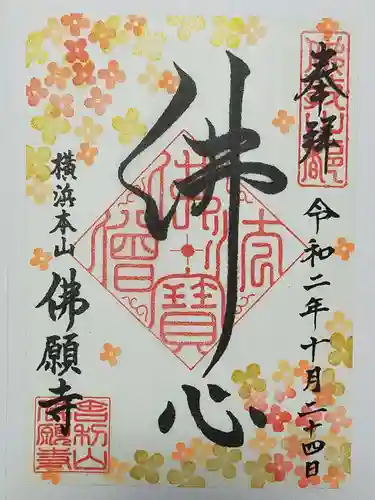 奉拝
令和二年十月二十四日
佛心
佛法僧寶
横浜本山
佛願寺